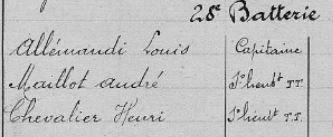 28e Batterie
Allémandi Louis Capitaine
Maillot André Ss lieut TT.
Chevalier Henri Ss lieut T.T.